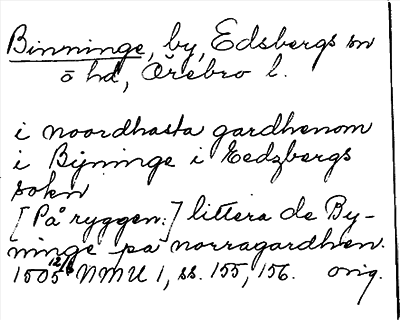 Binninge, by, Edsbergs sn
ö hd, Örebro l.
i noordhasta gardhenom
i Bijninge i Eedzbergs
sokn
[På ryggen:] littera de By-
ninge pa norragardhen.
1505 12/6 NMU 1, ss. 155, 156. orig.